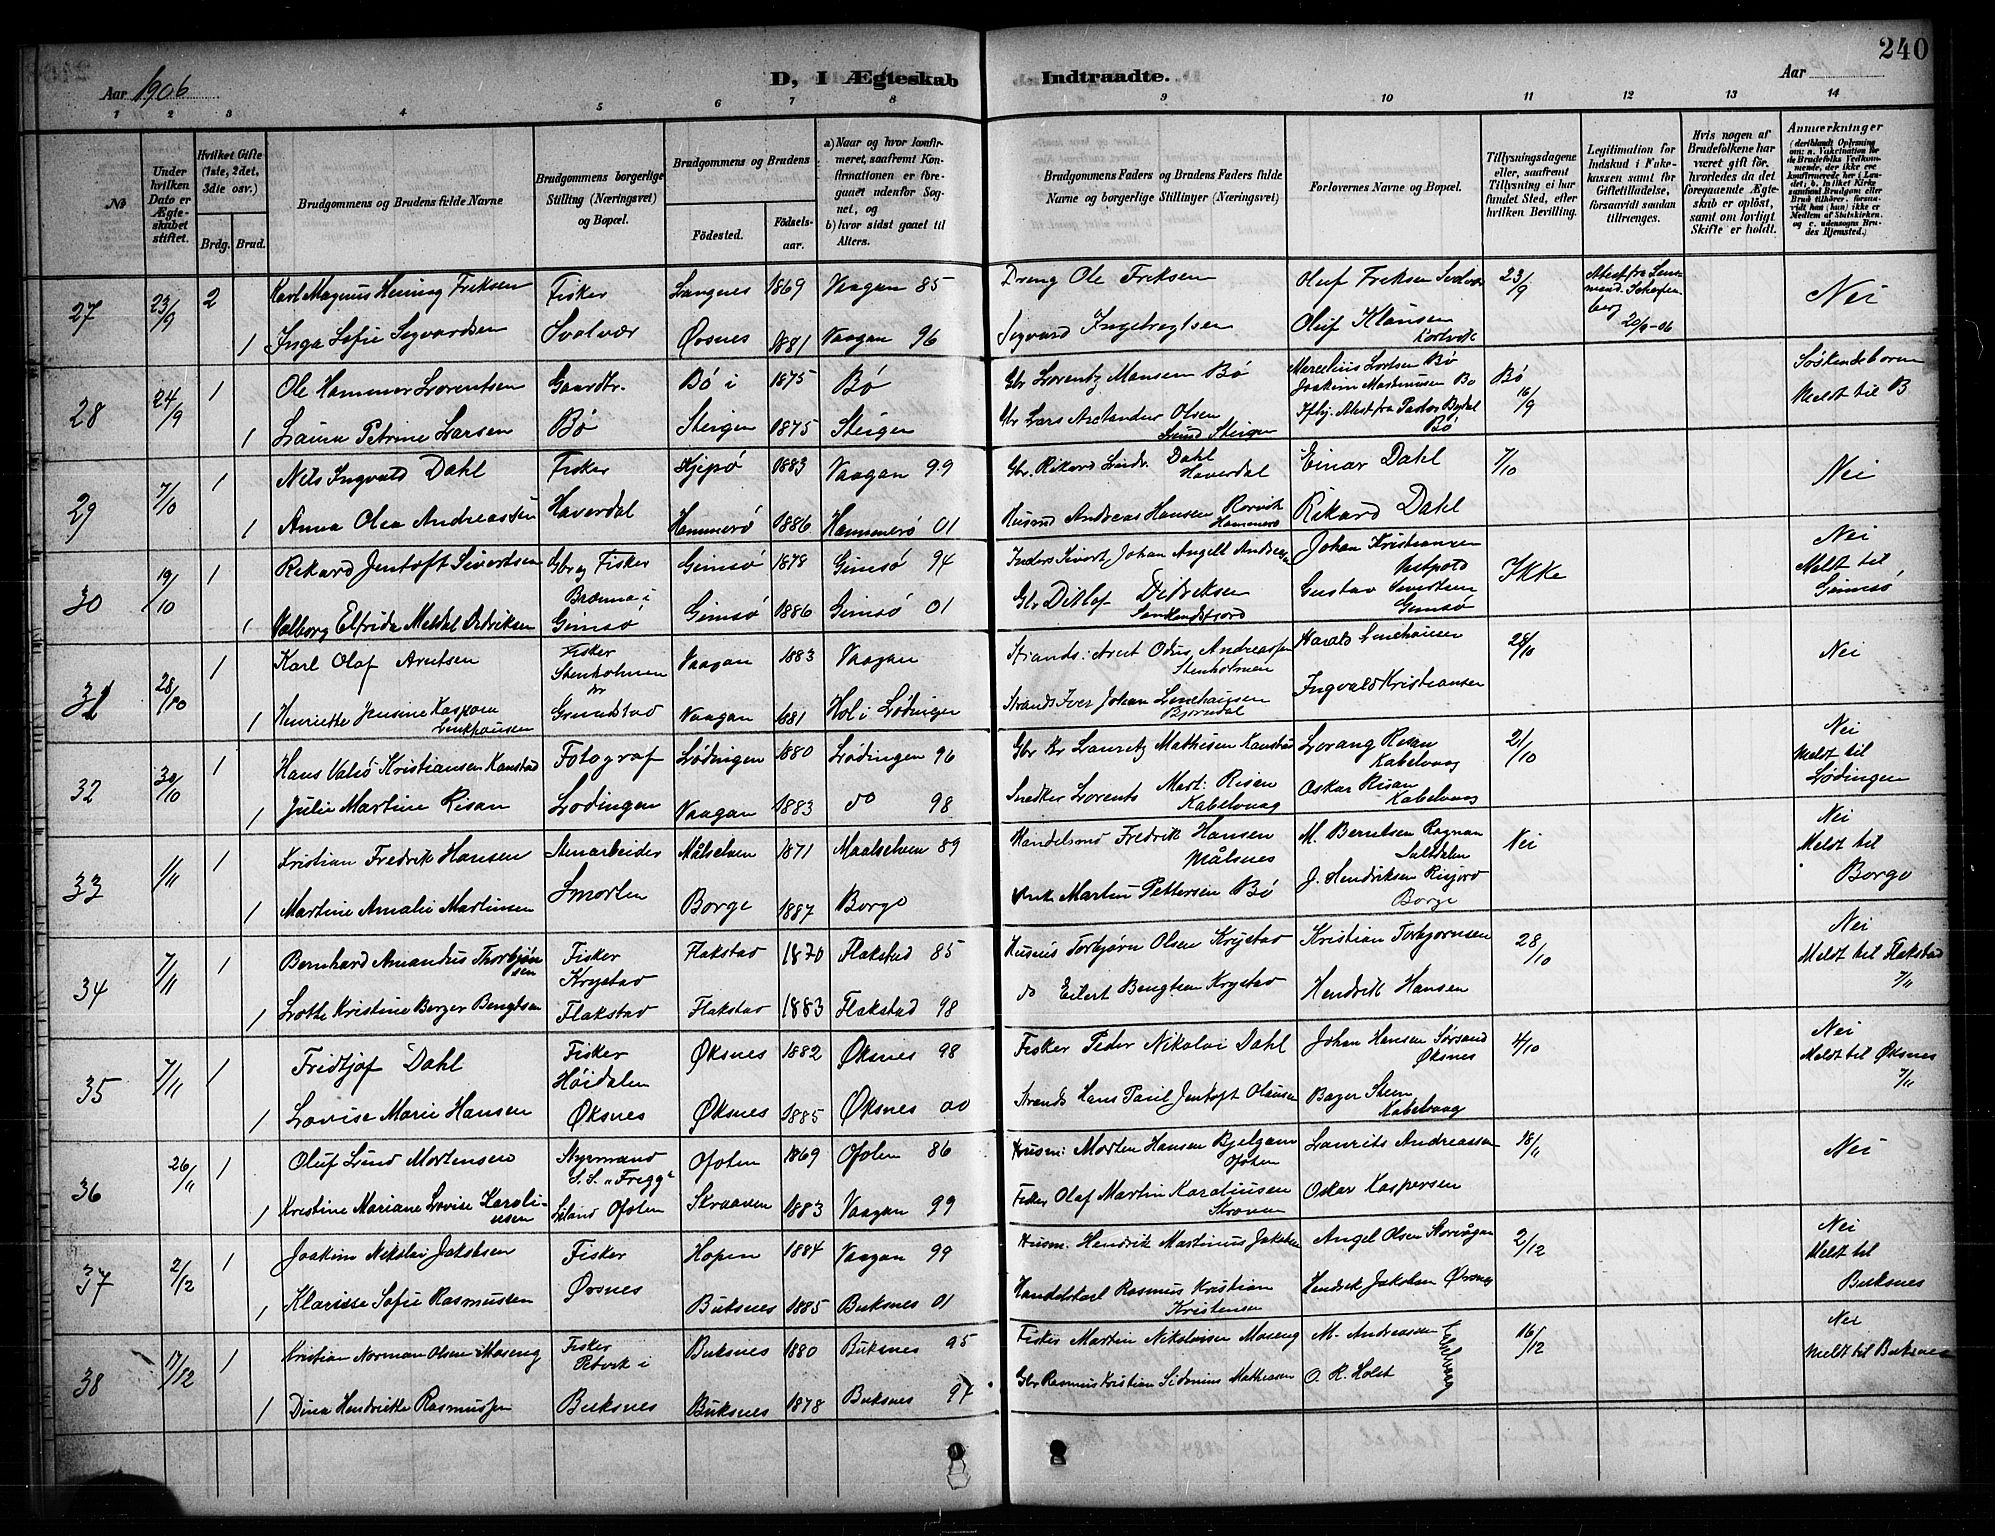 240
Aar 1906
D, I Ægteskab Indtraadte.
Aar
1 2 3 4 5 6 7 8 9 10 11 12 13 14
No
Under hvilken Dato er Ægteskabet stiftet.
Hvilket Gifte (1ste, 2det, 3die osv.)
Brdg. Brud.
Brudgommens og Brudens fulde Navne
Brudgommens borgerlige Stilling (Næringsvei) og Bopæl.
Brudgommens og Brudens
Födested. Födselsaar.
a) Naar og hvor konfirmeret, saafremt Konfirmationen er foregaaet udenfor Sognet, og
b) hvor sidst gaaet til Alters.
Brudgommens Faders og Brudens Faders fulde Navne og borgerlige Stillinger (Næringsvei)
Forlovernes Navne og Bopæl.
Tillysningsdagene eller, saafremt Tillysning ei har fundet Sted, efter hvilken Bevilling.
Legitimation for Indskud i Enkekassen samt for Giftetilladelse, forsaavidt saadan tiltrænges.
Hvis nogen af Brudefolkene har været gift för, hvorledes da det foregaaende Ægteskab er oplöst, samt om lovligt Skifte er holdt.
Anmærkninger
27 23/9 2 Karl Magnus Hening Friksen Fisker Langnes 1869 Vaagan 85 Dreng Ole Friksen Oluf Friksen Svolvær 23/9 Attest fra Lensmand 20/9-06 Nei
1 Inga Sofie Sigvardsen Svolvær Ørsnes 1881 Vaagan 96 Sigvard Ingebregtsen Oluf Klausen
28 24/9 1 Ole Hammer Lorentsen Gaardbr. Bø i 1875 Bø Gbr Lorentz Mansen Bø Marcelius Lortsen Bø Bø 16/9 Søskendebørn
Joakim Martinusen Bø Meldt til B
1 Laura Petrine Larsen Bø Steigen 1875 Steigen Gbr Lars Andander Olsen Lund Steigen Ifølg. Attest fra Pastor Bø
29 7/10 1 Nils Ingvald Dahl Fisker Kjepsø 1883 Vaagan 99 Gbr. Rikard Dahl Haverdal Einar Dahl 7/10 Nei
1 Anna Olea Andreassen Haverdal Hammerø 1886 Hammerø 01 Husmd Andreas Hansen Rorvik Hammerø Rikard Dahl
30 19/10 1 Rikard Jentoft Sivertsen Gbr og Fisker Gimsø 1878 Gimsø 94 Inders Sivert Johan Angell Andersen Johan Kristiansen Vestpold Ikke Nei
Meldt til
1 Valborg Elfrida Meldal Didriksen Brenna i Gimsø Gimsø 1886 Gimsø 01 Gbr Ditlef Didriksen Sundlandsfjord Gustav Gimsø Gimsø
31 28/10 1 Karl Olaf Arntsen Fisker Stenholmen Vaagan 1883 Vaagan Strands: Arnt Odin Andreassen Stenholmen Harald Linchausen 28/10 Nei
1 Henriette Jensine Kaspara Linkhausen Grundstad Vaagan 1881 Hol i Lødingen Strands Iver Johan Linchausen Bjørndal Ingvald Kristiansen
32 30/10 1 Hans Valsø Kristiansen Kanstad Fotograf Lødingen 1880 Lødingen 96 Gbr Kr Lauritz Mathisen Kanstad Lorang Risan Kabelvaag 21/10 Nei
Meldt til
1 Julie Martine Risan Lodingen Vaagan 1883 do 98 Snedker Lorents Mart. Risan Kabelvaag Oskar Risan Kabelvaag Lødingen
33 1/11 1 Kristian Fredrik Hansen Stenarbeider Målselven 1871 Maalselven 89 Handelsmd Fredrik Hansen Målsnes M. Berntsen Rognan Saltdalen Nei Nei
Meldt til
1 Martine Amalie Martinsen Smorten Borge 1887 Borge Martin Pettersen Bø J. Hendriksen Risjord Borge Borge
34 7/11 1 Bernhard Amandus Thorbjørnsen Fisker Flakstad 1870 Flakstad 85 Husmd Torbjørn Olsen Krystad Kristian Torbjørnsen 28/10 Nei
Krystad Meldt til Flakstad 7/11
1 Lotte Kristine Berger Bengtsen Flakstad Flakstad 1883 Flakstad 98 do Eilert Bengtsen Krystad Hendrik Hansen
35 7/11 1 Fridtjof Dahl Fisker Øksnes 1882 Øksnes 98 Fisker Peder Nikolai Dahl Johan Hansen Sørsand Øksnes 4/10 Nei
Høidalen Meldt til Øksnes 7/11
1 Lovise Marie Hansen Øksnes Øksnes 1885 Øksnes 00 Strands Hans Paul Jentoft Olausen Bager Steen Kabelvaag
36 26/11 1 Oluf Lund Mortensen Styrmand Ofoten 1869 Ofoten 86 Husm: Morten Hansen Bjelgam Ofoten Laurits Andreassen 18/11 Nei
S.S. „Frigg“
1 Kristine Mariane Lovise Karoliussen Liland Ofoten Skraaven 1883 Vaagan 99 Fisker Olaf Martin Karoliussen Skroven Oskar Kaspersen
37 2/12 1 Joakim Nikolai Jakobsen Fisker Hopen 1884 Vaagan 99 Husm: Hendrik Martinus Jakobsen Angel Olsen Storvågan 2/12 Nei
Meldt til
1 Klarisse Sofie Rasmussen Ørsnes Buksnes 1885 Buksnes 01 Handelskarl Rasmus Kristian Kristensen Hendrik Jakobsen Ørsnes Buksnes
38 17/12 1 Kristian Norman Olsen Moseng Fisker Buksnes 1880 Buksnes 95 Fisker Martin Nikolaisen Moseng M. Andreassen 16/12 Nei
Petvik i Meldt til Buksnes
1 Dina Hendrikke Rasmussen Buksnes Buksnes 1878 Buksnes 94 Gbr Rasmus Kristian Sidonius Mathiassen O. R. Holst